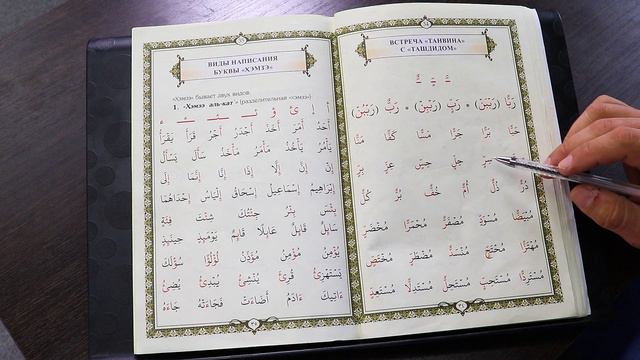 ВИДЫ НАПИСАНИЯ
БУКВЫ «ХЭМЗЭ»
«Хэмзэ» бывает двух видов.
1. «Хэмзэ аль-кат'» (разделительная «хэмзэ»)
أَخَذَ أَمَرَ أَخَذَ أَجْدَرُ أَجْرُ قَرَأَ يَقْرَأُ
يَأْمُرُ يَأْخُذُ مَأْمَرَ مَأْخَذَ سَأَلَ يَسْأَلُ
إِنْ إِلَّا إِذَا إِنَّا إِنَّمَا إِلَى
إِبْرَاهِيمُ إِسْمَاعِيلُ إِسْحَاقُ إِلْيَاسُ إِحْدَاهُمَا
بِئْسَ بِئْرُ جِئْتُكَ شِئْتَ فِئَةٍ
سَائِلُ قَائِلُ عَائِلًا قَائِمُ يَوْمَئِذٍ حِينَئِذٍ
يُؤْمِنُ مُؤْمِنُ مُؤَذِّنُ لُؤْلُؤًا سُؤْلَكَ
يَسْتَهْزِئُ قُرِئَ يُنْشِئُ يُبْدِئُ يُضِئُ
ءَاتِيكَ ءَادَمُ أَضَاءَتْ فَجَاءَتْهُ جَاءَهُ
ВСТРЕЧА «ТАНВИНА»
С «ТАШДИДОМ»
رَبًّا (رَبَّنْ) * رَبٍّ (رَبِّنْ) * رَبٌّ (رَبُّنْ)
حَبًّا جَرًّا مَسًّا كَفًّا مَنًّا
جَلٍّ عِزٍّ بِرٍّ
ذُرٌّ ذُلٌّ أُمٌّ خُفٌّ بُرٌّ كُلٌّ
مُبْيَضًّا مُسْوَدًّا مُصْفَرًّا مُحْمَرًّا مُخْضَرًّا
مُهْتَزًّا مُحْتَجٍّ مُنْسَدٍّ مُضْطَرٍّ مُخْتَصٍّ
مُسْتَقِرًّا مُسْتَحِبٍّ مُسْتَحِلٍّ مُسْتَدِلًّا مُسْتَعِدٍّ